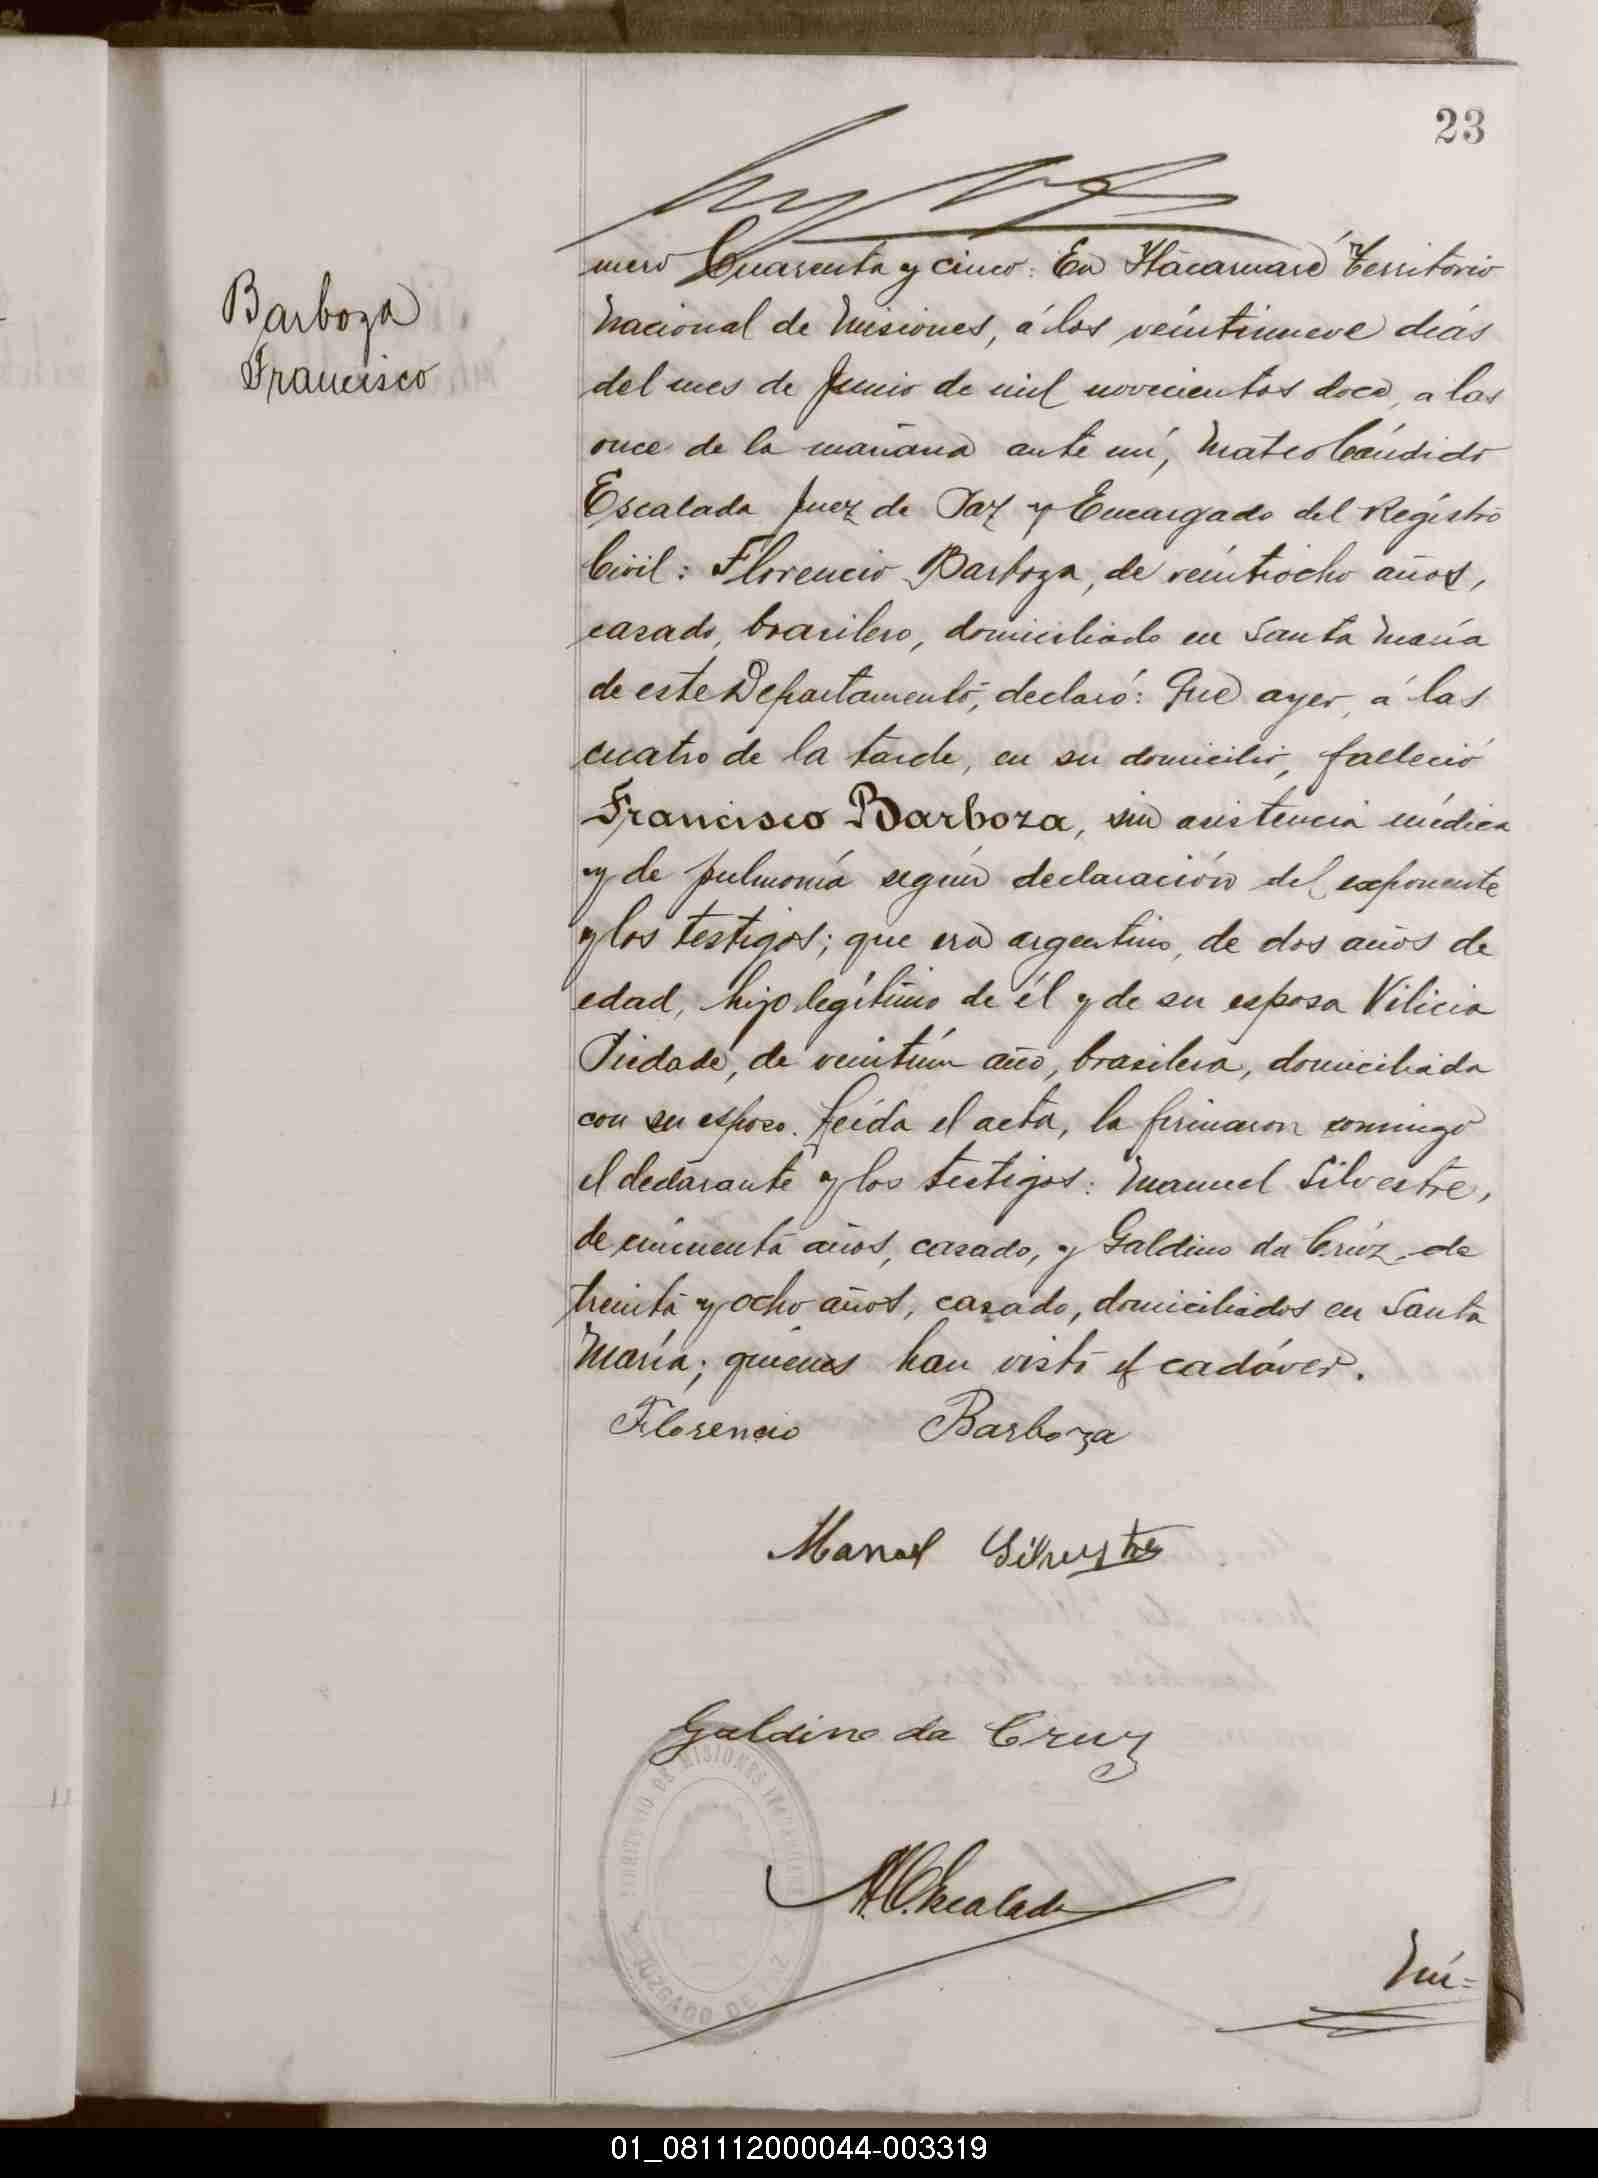 23
Barboza
Francisco
mero Cuarenta y cinco: En Itacaruaré Territorio
Nacional de Misiones, á los veintinueve dias
del mes de Junio de mil novecientos doce, a las
once de la mañana ante mí, Mateo Cándido
Escalada Juez de Paz y Encargado del Registro
Civil: Florencio Barboza, de veintiocho años,
casado, brasilero, domiciliado en Santa María
de este Departamento, declaró: Que ayer, á las
cuatro de la tarde, en su domicilio, falleció
Francisco Barboza, sin asistencia médica
y de pulmonía según declaración del exponente
y los testigos; que era argentino, de dos años de
edad, hijo legítimo de él y de su esposa Vilicia
Piedade, de veintiún año, brasilera, domiciliada
con su esposo. Leída el acta, la firmaron conmigo
el declarante y los testigos: Manuel Silvestre,
de cincuenta años, casado, y Galdino da Cruz, de
treinta y ocho años, casado, domiciliados en Santa
María; quienes han visto el cadáver.
Florencio Barboza
Manoel Silvestre
Galdino da Cruz
TERRITORIO DE MISIONES
JUZGADO DE PAZ
M.C. Escalada
Nú=
01_081112000044-003319